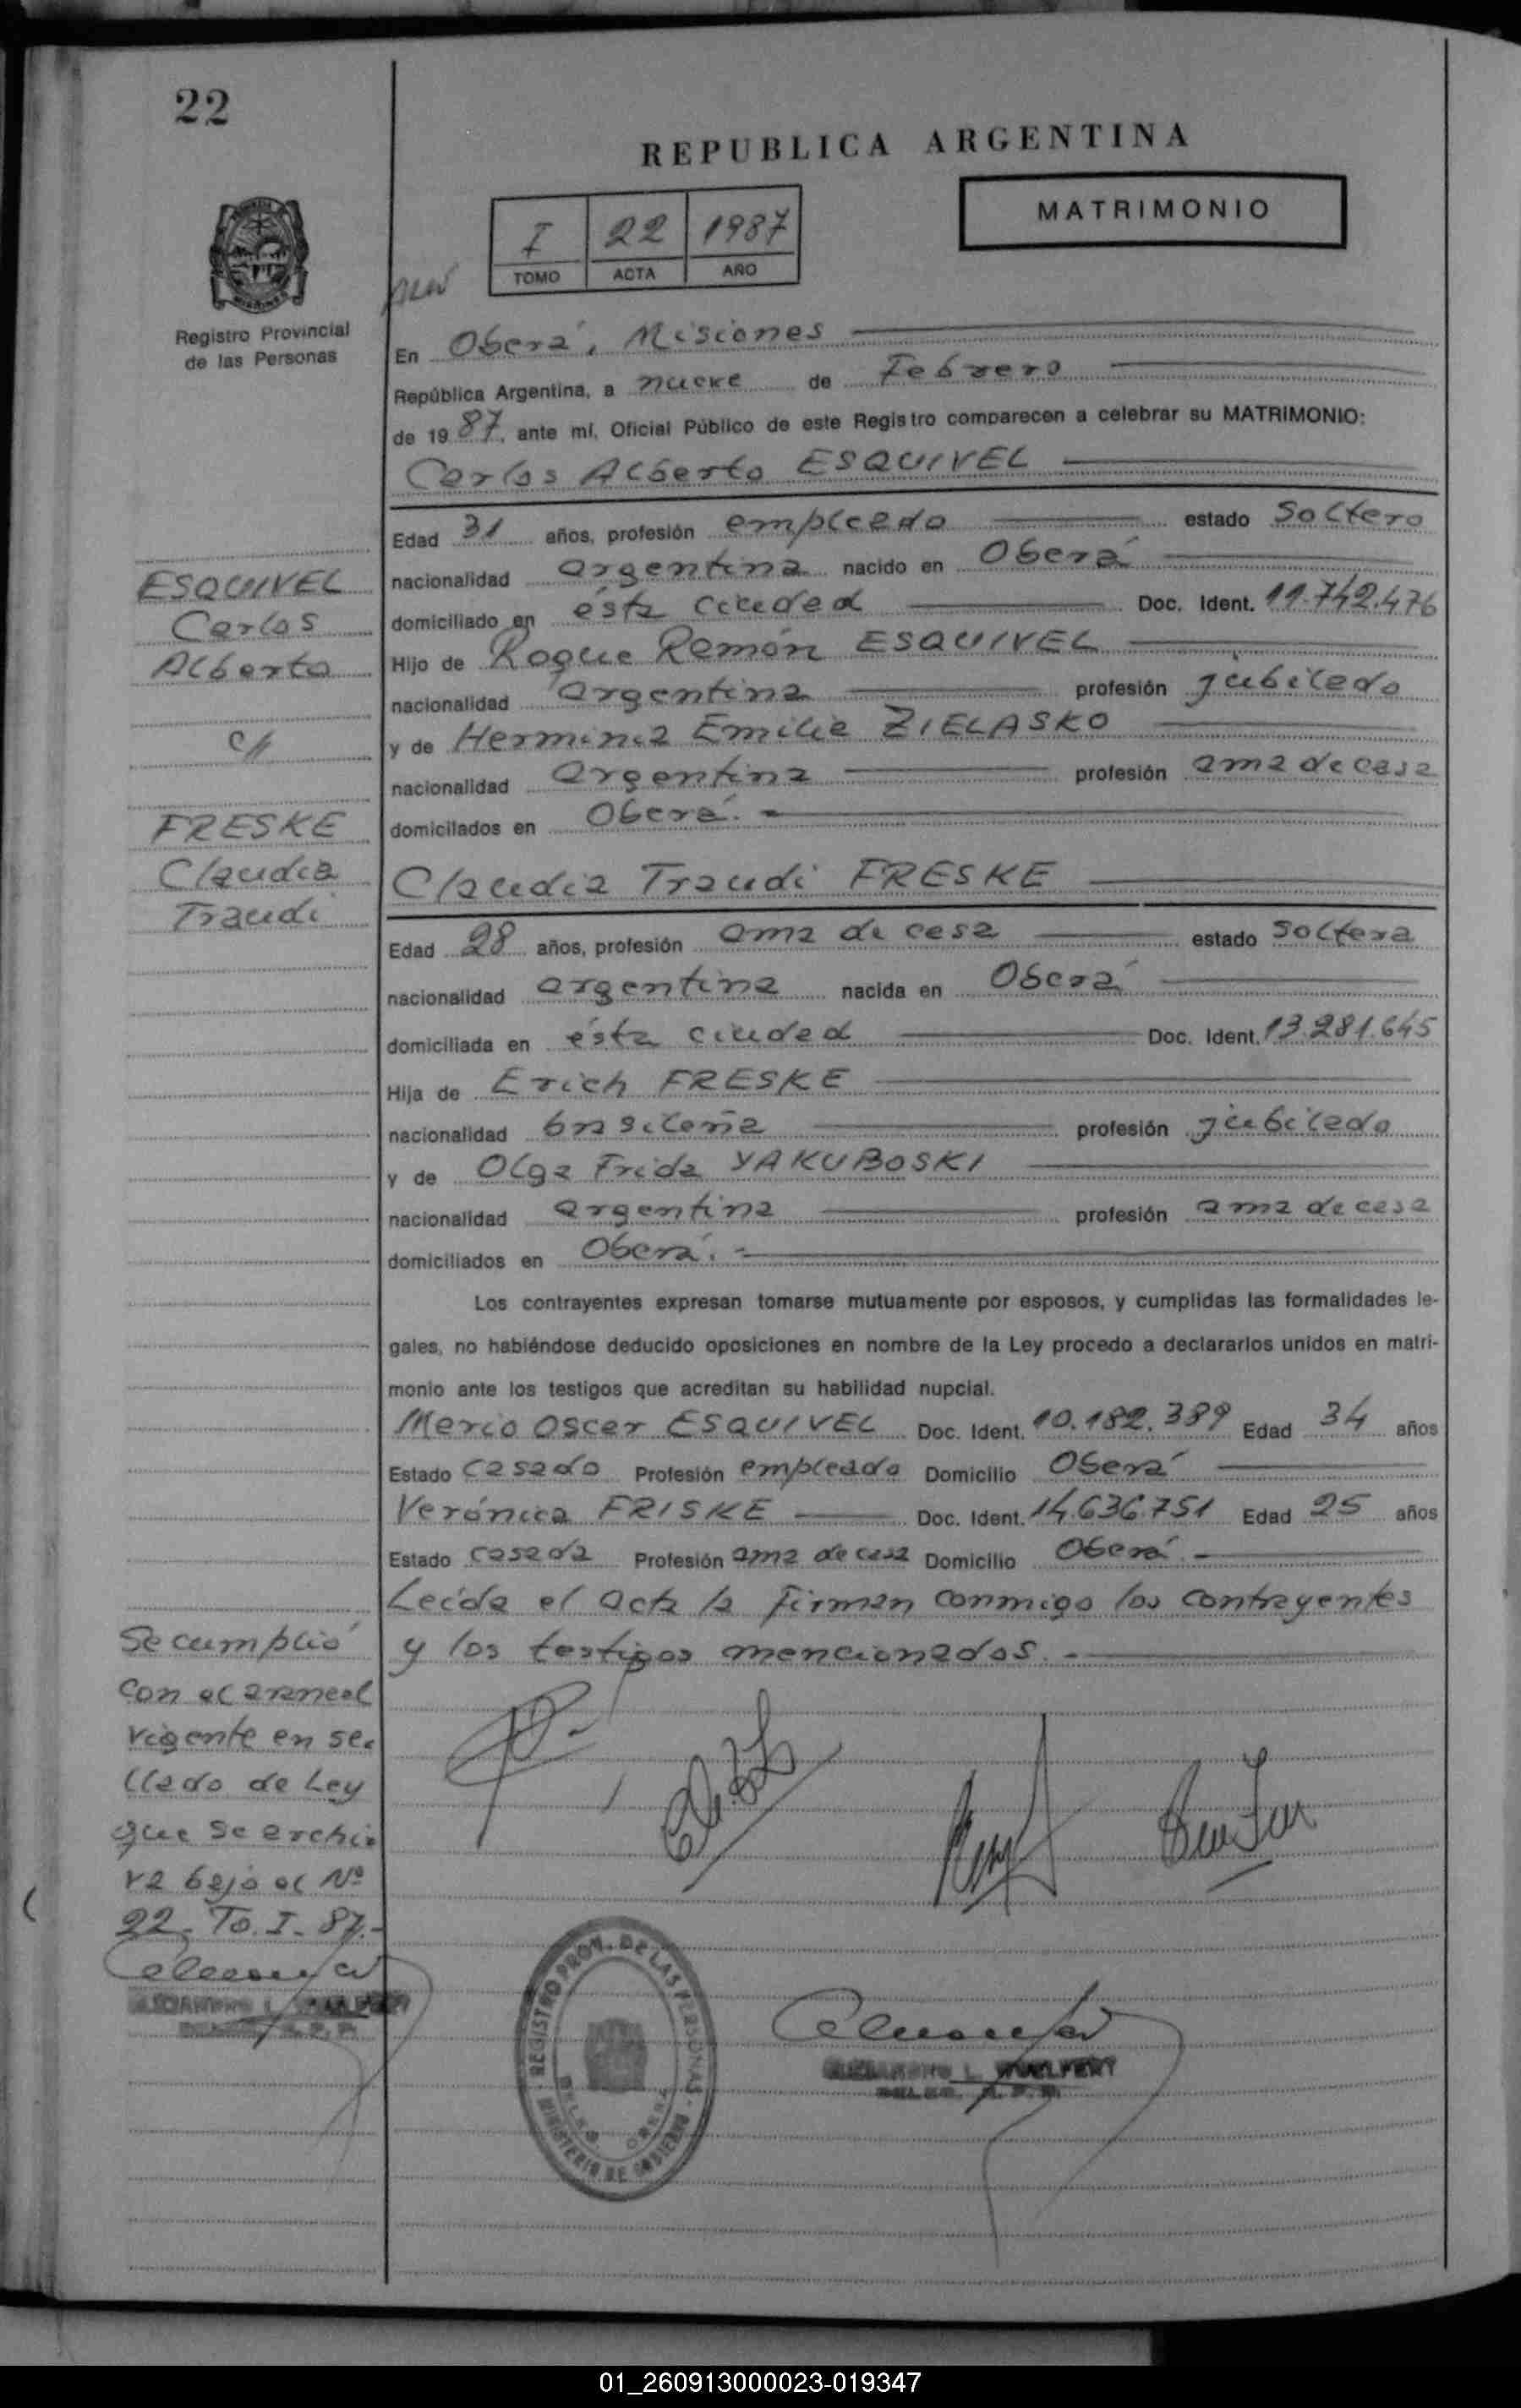 22
REPUBLICA ARGENTINA
MATRIMONIO
I 22 1987
TOMO ACTA AÑO
Registro Provincial
de las Personas
En Oberá, Misiones
República Argentina, a nueve de Febrero
de 19 87, ante mí, Oficial Público de este Registro comparecen a celebrar su MATRIMONIO:
Carlos Alberto ESQUIVEL
Edad 31 años, profesión empleado estado soltero
nacionalidad argentina nacido en Oberá
domiciliado en ésta ciudad Doc. Ident. 11.742.476
Hijo de Roque Ramón ESQUIVEL
nacionalidad argentina profesión jubilado
y de Herminia Emilia ZIELASKO
nacionalidad argentina profesión ama de casa
domicilados en Oberá.-
ESQUIVEL
Carlos
Alberto
c/
FRESKE
Claudia
Traudi
Claudia Traudi FRESKE
Edad 28 años, profesión ama de casa estado soltera
nacionalidad argentina nacida en Oberá
domiciliada en ésta ciudad Doc. Ident. 13.281.645
Hija de Erich FRESKE
nacionalidad brasileña profesión jubilado
y de Olga Frida YAKUBOSKI
nacionalidad argentina profesión ama de casa
domiciliados en Oberá.-
Los contrayentes expresan tomarse mutuamente por esposos, y cumplidas las formalidades le-
gales, no habiéndose deducido oposiciones en nombre de la Ley procedo a declararlos unidos en matri-
monio ante los testigos que acreditan su habilidad nupcial.
Mario Oscar ESQUIVEL Doc. Ident. 10.182.389 Edad 34 años
Estado casado Profesión empleado Domicilio Oberá
Verónica FRISKE Doc. Ident. 14.636.751 Edad 25 años
Estado casada Profesión ama de casa Domicilio Oberá.-
Leída el acta la firman conmigo los contrayentes
y los testigos mencionados.-
Se cumplió
con el arancel
vigente en se-
llado de Ley
que se archi-
va bajo el Nº
22- To. I- 87.-
REGISTRO PROV. DE LAS PERSONAS
MINISTERIO DE GOBIERNO
L. WUELPERT
01_260913000023-019347